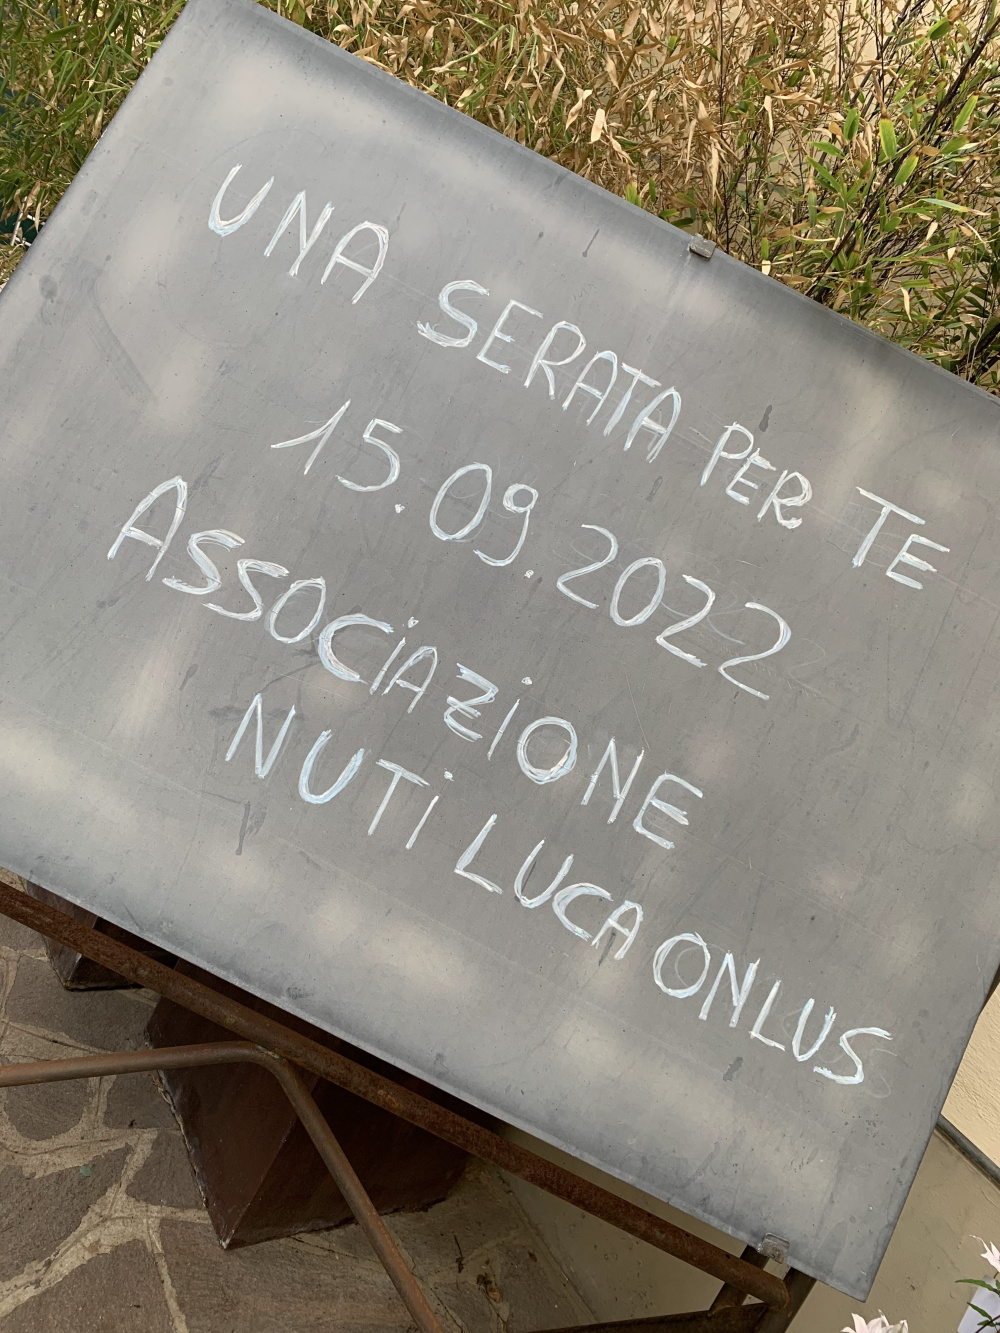 UNA SERATA PER TE
15.09.2022
ASSOCiAZiONE
NUTi LUCA ONLUS